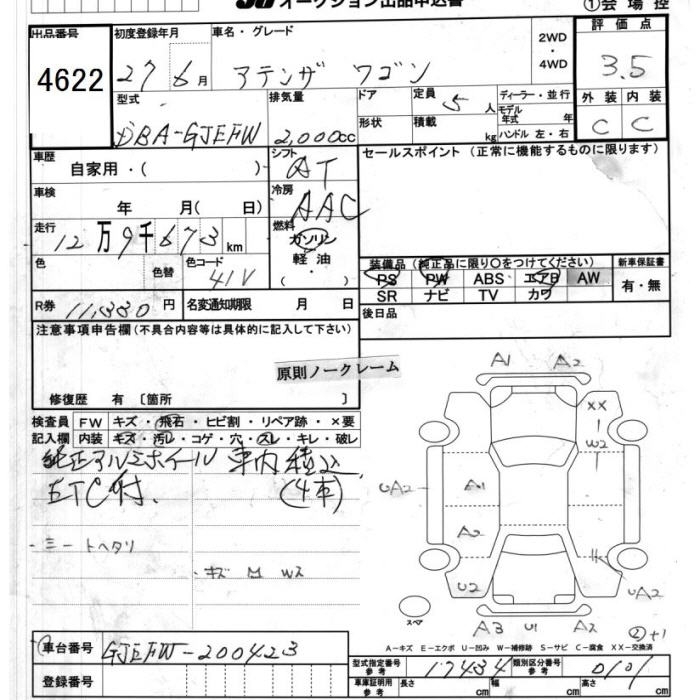 オークション出品申込書
①会場控
出品番号
4622
初度登録年月
27 6月
車名・グレード
アテンザ ワゴン
2WD
・
4WD
評価点
3.5
外装 内装
C C
型式
DBA-GJEFW
排気量
2,000cc
ドア
形状
定員
5人
積載
kg
ディーラー・並行
モデル年式 年
ハンドル 左・右
車歴
自家用・( )
シフト
AT
セールスポイント (正常に機能するものに限ります)
車検
年 月( 日)
冷房
AAC
走行
12万9千673km
燃料
ガソリン
軽油
( )
色
色替
色コード
41V
装備品 (純正品に限り○をつけてください)
PS PW ABS エアB AW
SR ナビ TV カワ
新車保証書
有・無
R券
11,330円
名変通知期限 月 日
後日品
注意事項申告欄(不具合内容等は具体的に記入して下さい)
原則ノークレーム
修復歴 有 〔箇所 〕
検査員記入欄
FW キズ・飛石・ヒビ割・リペア跡・×要
内装 キズ・汚レ・コゲ・穴・スレ・キレ・破レ
純正アルミホイール 車内積込
ETC付. (4本)
シートヘタリ
キズ M WS
A1 A2
XX
W2
UA2
A1
A2
U2
UA2
スペア
A3 U1 A2
②+1
A－キズ E－エクボ U－凹み W－補修跡 S－サビ C－腐食 XX－交換済
車台番号
GJEFW-200423
登録番号
型式指定番号 参考
17434
類別区分番号 参考
0101
車庫証明用 参考
長さ cm 幅 cm 高さ cm